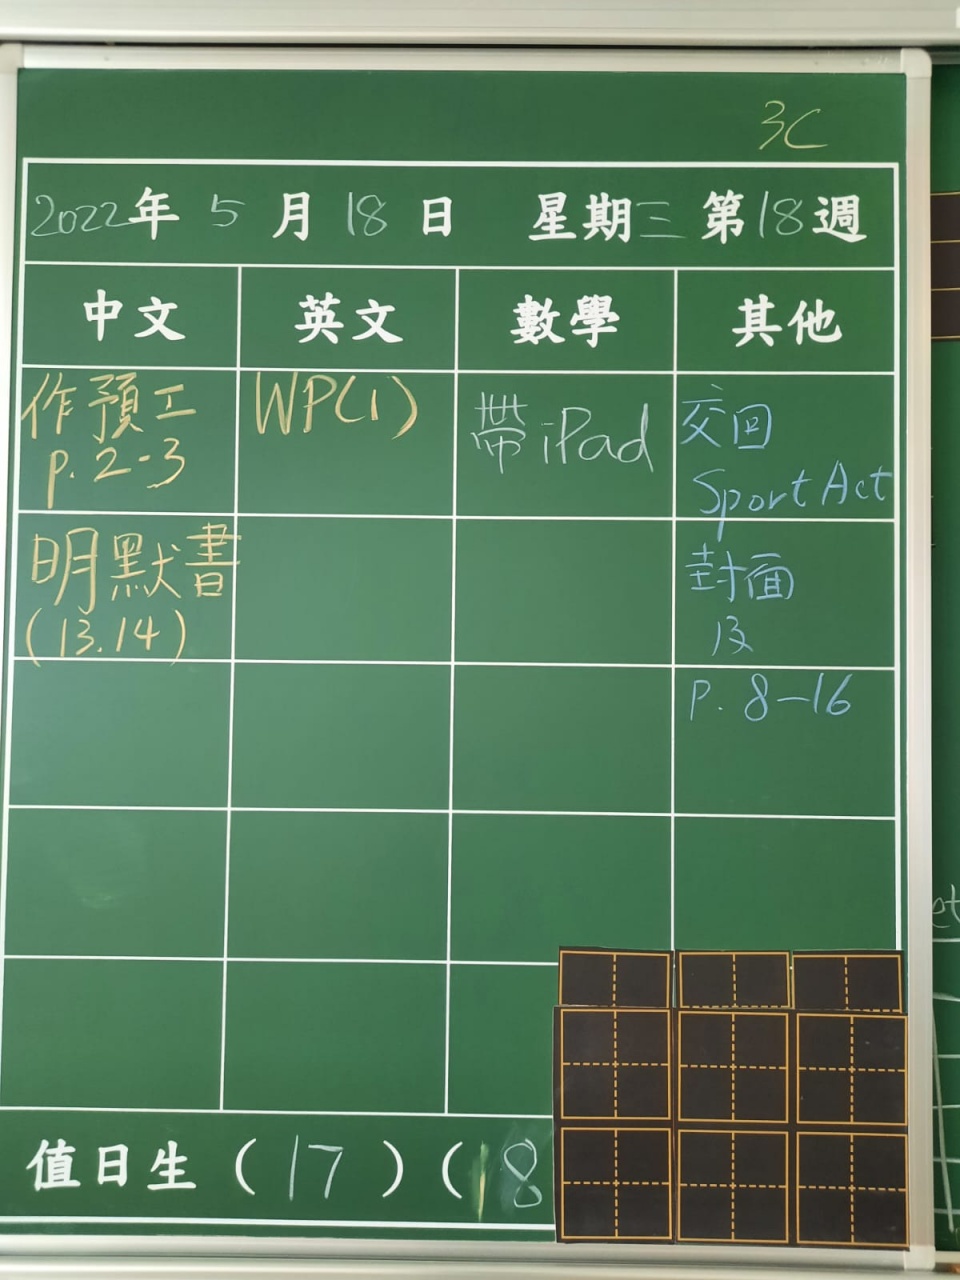 3C
2022年 5 月 18 日 星期三 第18週
中文 英文 數學 其他
作預工
p.2-3
明默書
(13.14)
WP(1)
帶iPad
交回
Sport Act
封面
及
P. 8-16
值日生 (17) (18